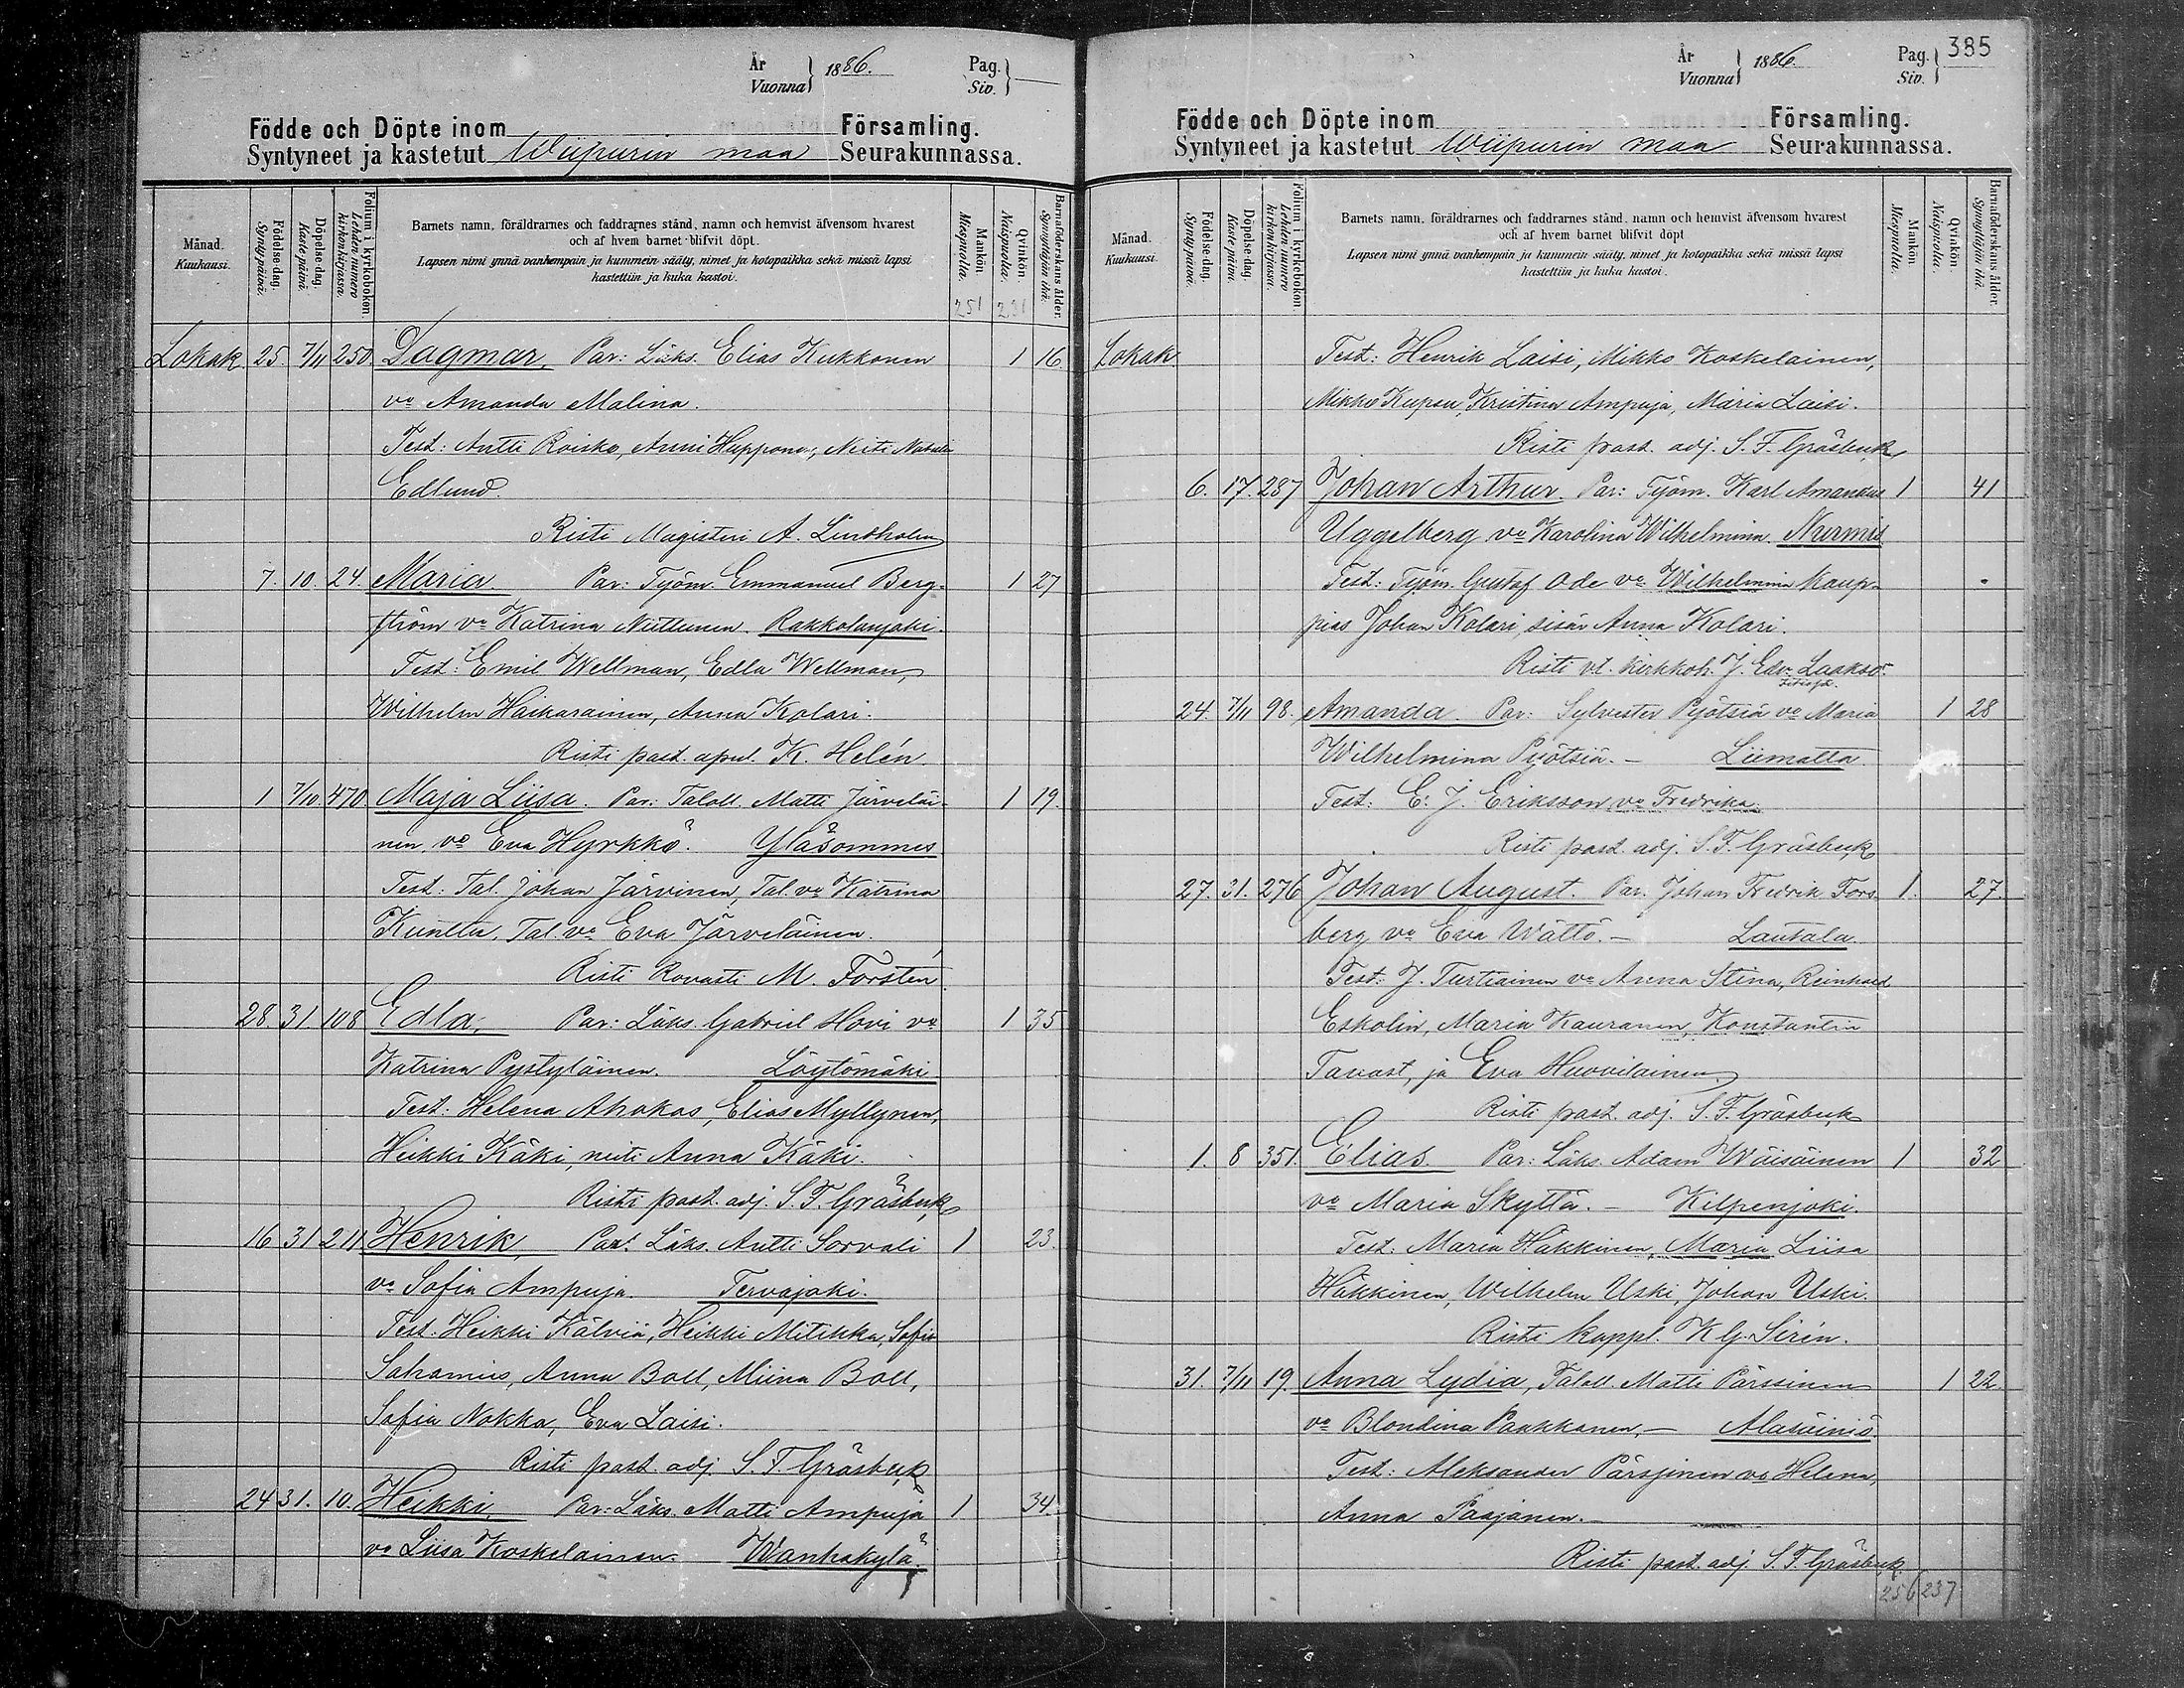 År
Vuonna } 1886.
Pag.
Siv. }
Födde och Döpte inom Församling.
Syntyneet ja kastetut Wiipurin maa Seurakunnassa.
Månad.
Kuukausi.
Födelse-dag.
Synty-päivä.
Döpelse-dag.
Kaste-päivä.
Folium i kyrkoboken.
Lehden numero kirkonkirjassa.
Barnets namn, föräldrarnes och faddrarnes stånd, namn och hemvist äfvensom hvarest
och af hvem barnet blifvit döpt.
Lapsen nimi ynnä vanhempain ja kummein sääty, nimet ja kotopaikka sekä missä lapsi
kastettiin ja kuka kastoi.
Mankön.
Miespuolia.
Qvinkön.
Naispuolia.
Barnaföderskans ålder.
Synnyttäjän ikä.
251 231
Lokak. 25. 7/11 250. Dagmar, Par: Läks. Elias Kukkonen 1 16.
vo Amanda Malina.
Test: Antti Roisko, Anni Hupponen, Neiti Natalia
Edlund.
Risti Magisteri A. Lindholm
7. 10. 24. Maria. Par: Työm. Emmanuel Berg- 1 27
ström vo Katrina Miettunen. Rakkolanjoki.
Test: Emil Wellman, Edla Wellman,
Wilhelm Haikarainen, Anna Kolari.
Risti past. apul. K. Helén.
1 7/10. 470 Maja Liisa. Par: Taloll. Matti Järveläi- 1 19.
nen, vo Eva Hyrkkö. Yläsommes
Test: Tal. Johan Järvinen, Tal. vo Katrina
Kuntta, Tal. vo Eva Järveläinen.
Risti Rovasti M. Forstén.
28. 31 108 Edla, Par: Läks. Gabriel Hovi vo 1 35
Katrina Pystyläinen. Löytömäki
Test: Helena Ahokas, Elias Myllynen,
Heikki Käki, neiti Anna Käki.
Risti past. adj. S. F. Gräsbeck
16 31 211 Henrik, Par: Läks. Antti Sorvali 1 23.
vo Sofia Ampuja. Tervajoki.
Test. Heikki Kälviä, Heikki Mitikka, Sofia
Sahamies, Anna Boll, Miina Boll,
Sofia Nokka, Eva Laisi.
Risti past. adj. S. F. Gräsbeck
24 31. 10. Heikki, Par: Läks. Matti Ampuja 1 34.
vo Liisa Koskelainen. Wanhakylä
År
Vuonna } 1886.
Pag.
Siv. } 385
Födde och Döpte inom Församling.
Syntyneet ja kastetut Wiipurin maa Seurakunnassa.
Månad.
Kuukausi.
Födelse-dag.
Syntypäivä.
Döpelse-dag.
Kaste päivä.
Folium i kyrkoboken.
Lehden numero kirkonkirjassa.
Barnets namn, föräldrarnes och faddrarnes stånd, namn och hemvist äfvensom hvarest
och af hvem barnet blifvit döpt
Lapsen nimi ynnä vanhempain ja kummein sääty, nimet ja kotopaikka sekä missä lapsi
kastettiin ja kuka kastoi.
Mankön.
Miespuolia.
Qvinkön.
Naispuolia.
Barnaföderskans ålder.
Synnyttäjän ikä.
Lokak. Test: Henrik Laisi, Mikko Koskelainen,
Mikko Kupsu, Kristina Ampuja, Maria Laisi.
Risti past. adj. S. F. Gräsbeck
6. 17. 287 Johan Arthur. Par: Työm. Karl Amandus 1 41
Uggelberg vo Karolina Wilhelmina. Nurmis
Test: Työm. Gustaf Ode vo Wilhelmina Kaup-
pias Johan Kolari, sisär Anna Kolari.
Risti vt. kirkkoh. J. Edv. Laakso.
24. 7/11 98. Amanda. Par: Sylvester Pyötsiä vo Maria 1 28
Wilhelmina Pyötsiä. - Liimatta.
Test: E. J. Eriksson vo Fredrika.
Risti past. adj. S. F. Gräsbeck
27. 31. 276 Johan August. Par. Johan Fredrik Fors- 1. 27.
berg vo Eva Wättö. - Lautala.
Test: J. Turtiainen vo Anna Stina, Reinhold
Eskolin, Maria Kauranen, Konstantin
Tavast, ja Eva Huovilainen.
Risti past. adj. S. F. Gräsbeck
1. 8 351. Elias. Par: Läks. Adam Wäisäinen 1 32
vo Maria Skyttä. - Kilpenjoki.
Test: Maria Häkkinen, Maria Liisa
Häkkinen, Wilhelm Uski, Johan Uski.
Risti kappl. K. G. Sirén.
31. 7/11 19. Anna Lydia, Taloll. Matti Pärssinen 1 22
vo Blondina Paakkanen, - Alasäiniö.
Test: Aleksander Pärssinen vo Helena,
Anna Paajanen. -
Risti past. adj. S. F. Gräsbeck
256 237